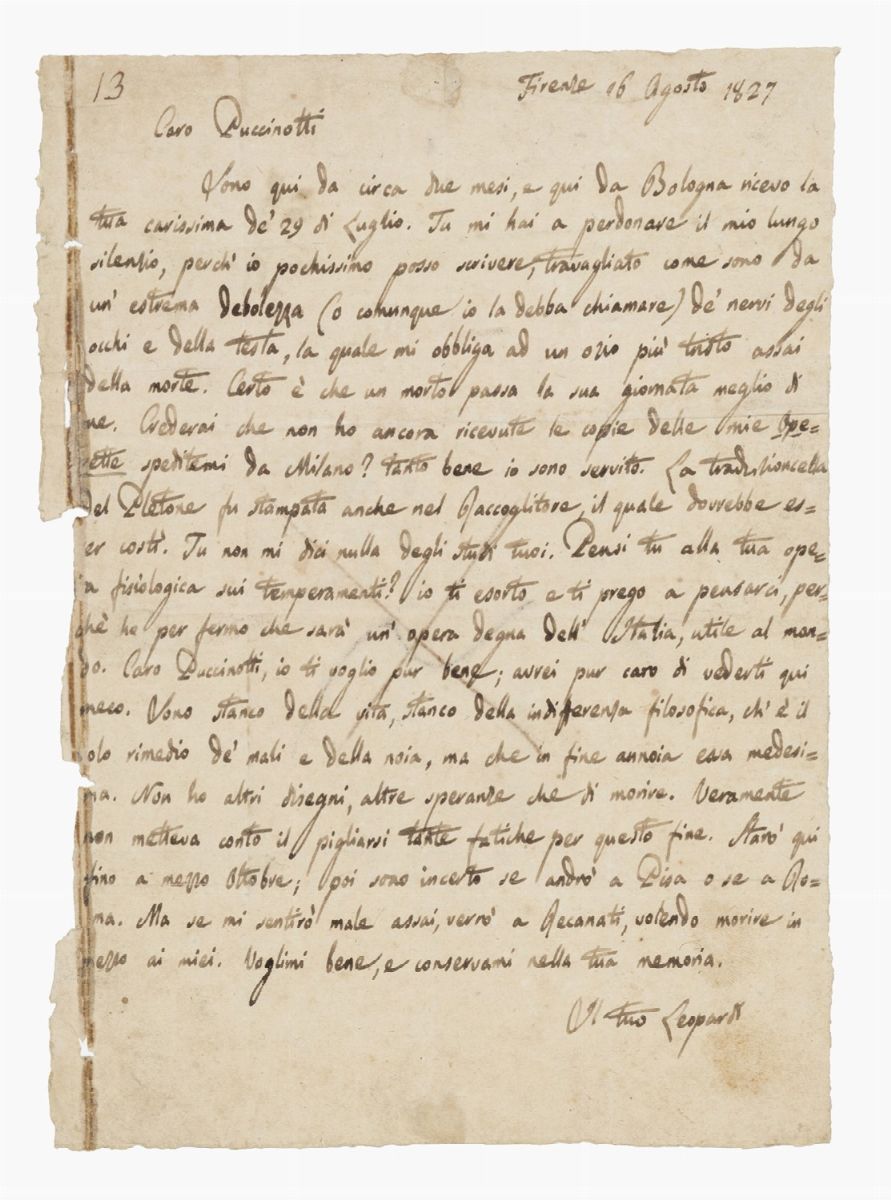 13
Firenze 16 Agosto 1827
Caro Puccinotti
Sono qui da circa due mesi, e qui da Bologna ricevo la
tua carissima de' 29 di Luglio. Tu mi hai a perdonare il mio lungo
silenzio, perch' io pochissimo posso scrivere, travagliato come sono da
un' estrema debolezza (o comunque io la debba chiamare) de' nervi degli
occhi e della testa, la quale mi obbliga ad un ozio più tristo assai
della morte. Certo è che un morto passa la sua giornata meglio di
me. Crederai che non ho ancora ricevute le copie delle mie Ope=
rette speditemi da Milano? tanto bene io sono servito. La traduzioncella
del Pletone fu stampata anche nel Raccoglitore, il quale dovrebbe es=
er costì. Tu non mi dici nulla degli studi tuoi. Pensi tu alla tua ope=
ra fisiologica sui temperamenti? io ti esorto e ti prego a pensarci, per=
chè ho per fermo che sarà un' opera degna dell' Italia, utile al mon=
do. Caro Puccinotti, io ti voglio pur bene; avrei pur caro di vederti qui
meco. Sono stanco della vita, stanco della indifferenza filosofica, ch' è il
solo rimedio de' mali e della noia, ma che in fine annoia essa medesi=
ma. Non ho altri disegni, altre speranze che di morire. Veramente
non metteva conto il pigliarsi tante fatiche per questo fine. Starò qui
fino a mezzo Ottobre; poi sono incerto se andrò a Pisa o se a Ro=
ma. Ma se mi sentirò male assai, verrò a Recanati, volendo morire in
mezzo ai miei. Voglimi bene, e conservami nella tua memoria.
Il tuo Leopardi